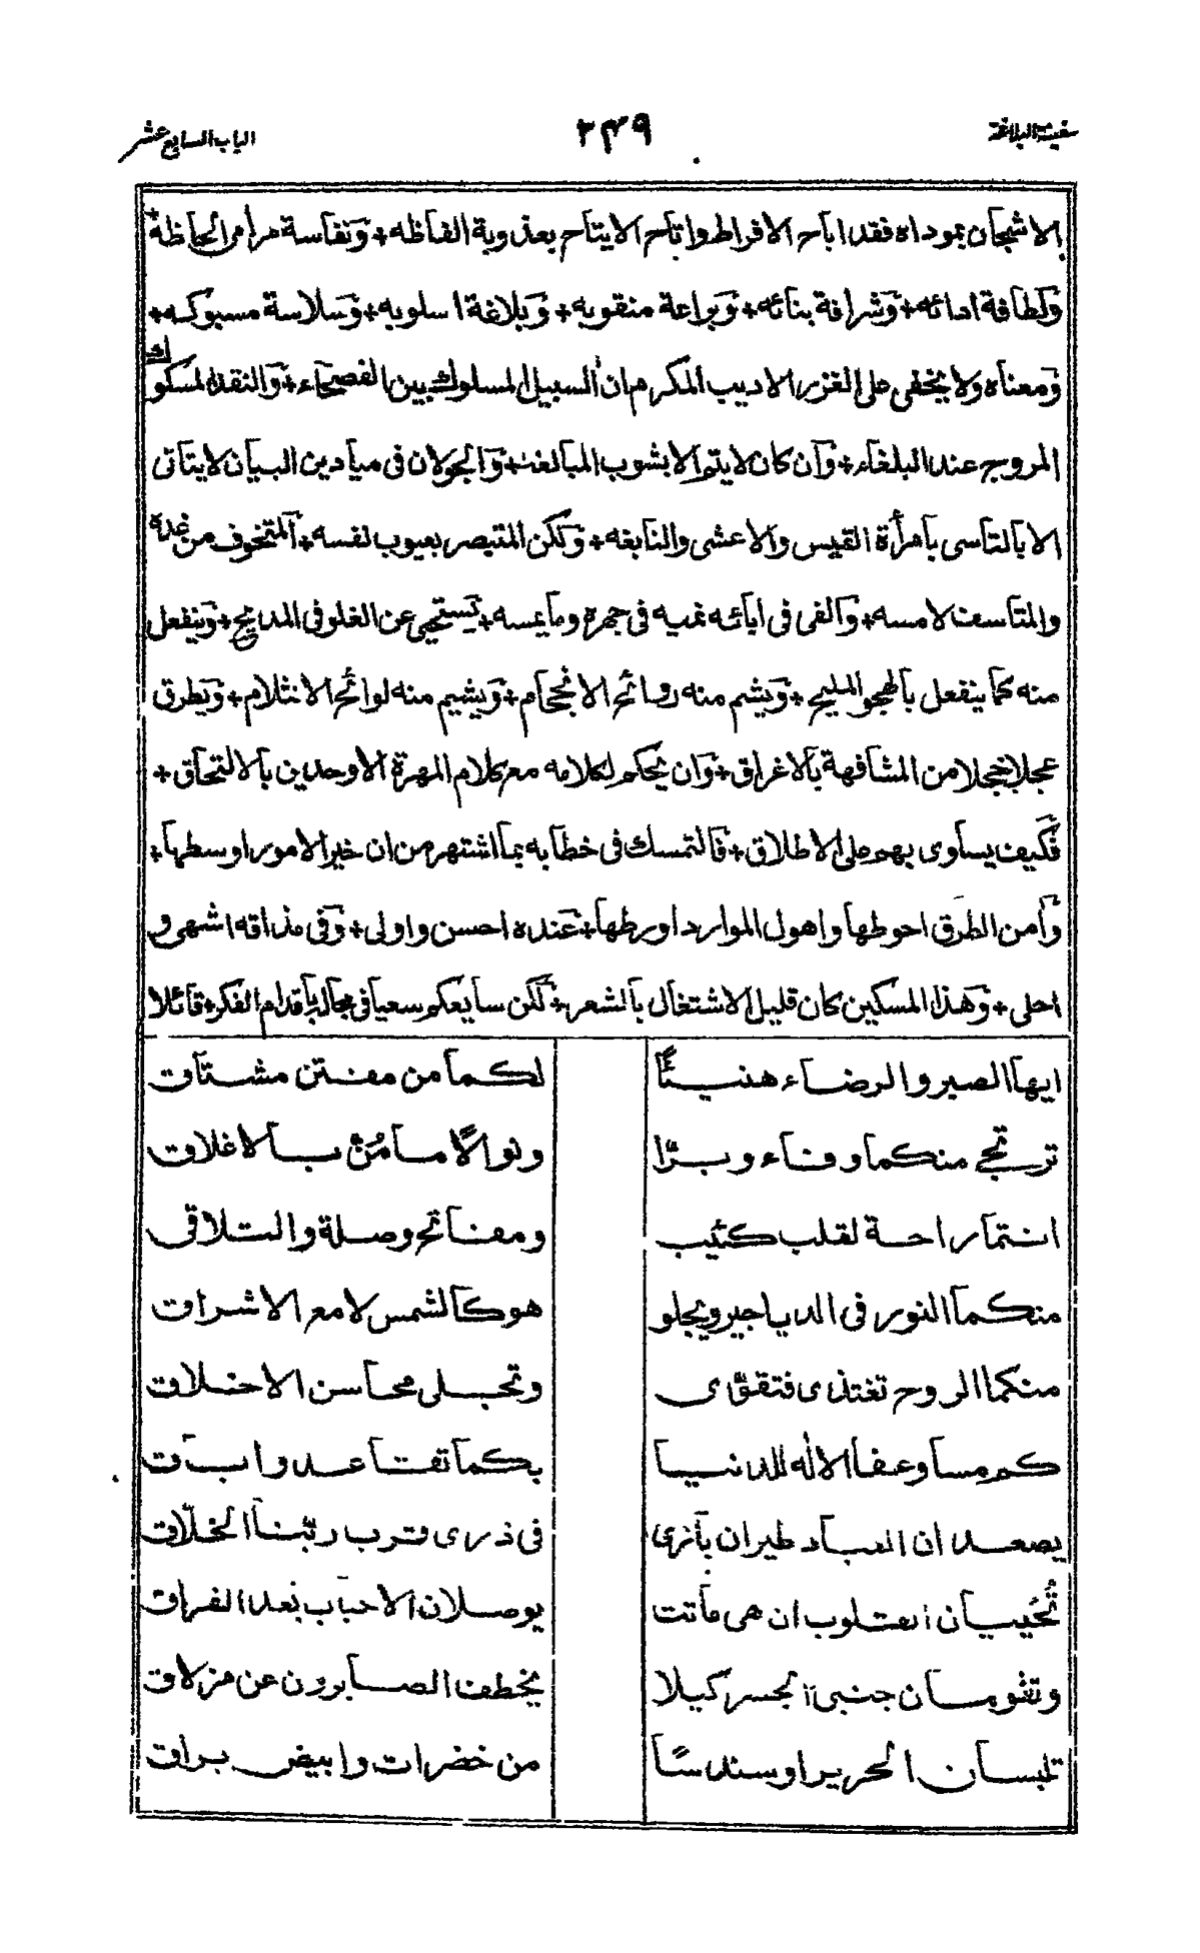 سفينة البلاغة ٢٤٩ الباب السابع عشر
الاشجان بموداه فقد اباح الافراط واتاح الايتاح بعذوبة الفاظه + ونفاسة مرامر الحاظه +
ولطافة ادائه + وشرافة بنائه + وبراعة منقوبه + وبلاغة اسلوبه + وسلاسة مسبوكه +
ومعناه ولا يخفى على الغزير الاديب المكرم ان السبيل المسلوك بين الفصحاء + والنقد المسكوك
المروج عند البلغاء + وان كان لا يتم الا بشوب المبالغة + والجولان فى ميادين البيان لا يتاتى
الا بالتاسى بامرأة القيس والاعشى والنابغه + ولكن المتبصر بعيوب نفسه + المتخوف من غده
والمتاسف لامسه + والفى فى ابائه غميه فى جهره وما يمسه + يستحيى عن الغلو فى المديح + وينفعل
منه كما ينفعل بالهجو المليح + ويشم منه روائح الانجحام + ويشيم منه لوائح الانثلام + ويطرق
عجلا خجلا من المشافهة بالاغراق + وان يحكم لكلامه مع كلام المهرة الاوحدين بالالتحاق +
فكيف يساوى بهم على الاطلاق + فالتمسك فى خطابه بما اشتهر من ان خير الامور اوسطها +
وامن الطرق احوطها واهول الموارد اورطها + عنده احسن واولى + وفى مذاقه اشهى و
احلى + وهذا المسكين كان قليل الاشتغال بالشعر + لكن سايعكم سعيا فى مجاله باقدام الفكر + قائلا
ايها الصبر والرضاء هنيئًا لكما من مفتن مشتاق
ترتجى منكما وفاء وبرّا ونوالًا مامُنّ بالاغلاق
انتما راحة لقلب كئيب ومفاتح وصلة والتلاقى
منكما النور فى الدياجير ويجلو هو كالشمس لامع الاشراق
منكما الروح تغتذى فتقوّى وتجلى محاسن الاخلاق
كم مساو عفا الاله للدنيا بكما تقتاعد واباق
يصعدان العباد طيران بازى فى ذرى قرب ربّنا الخلّاق
تُحييان القلوب ان هى ماتت يوصلان الاحباب بعد الفراق
وتقومان جنبى الجسر كيلا يخطف الصابرون عن مزلاق
تلبسان الحرير او سندسًا من خضرات وابيض براق